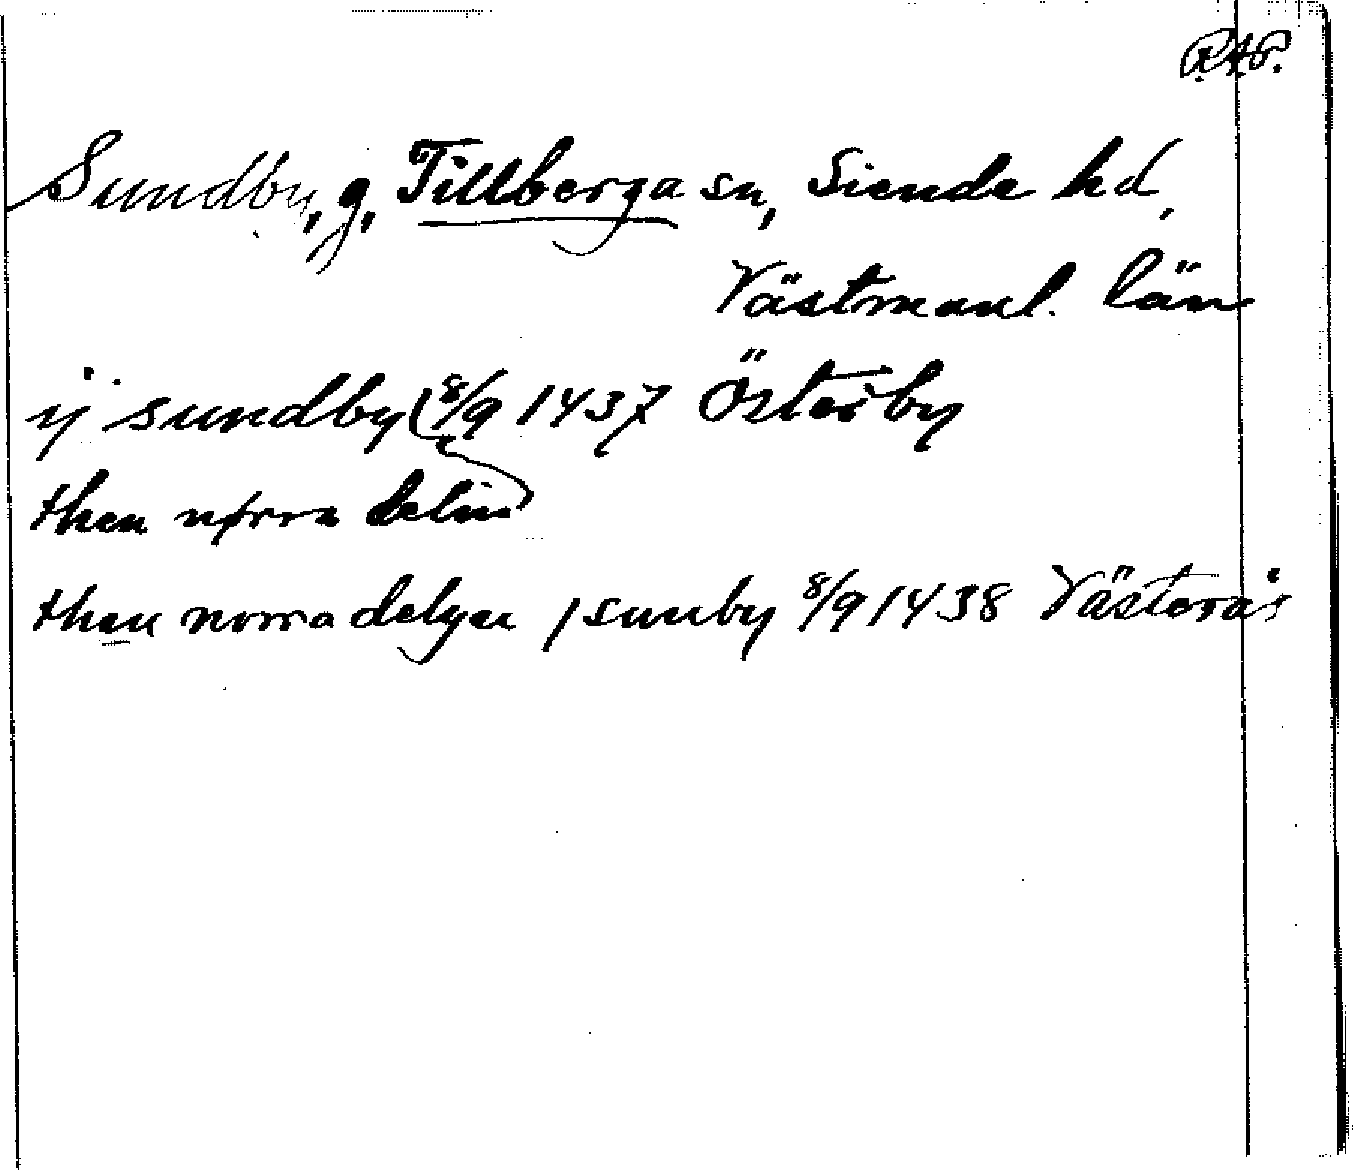 R.A.P.
Sundby, g, Tillberga sn, Siende hd,
Västmanl. län
ij sundby (8/9 1437 Österby
then nørra delin)
then norra delyen j sunby 8/9 1438 Västerås